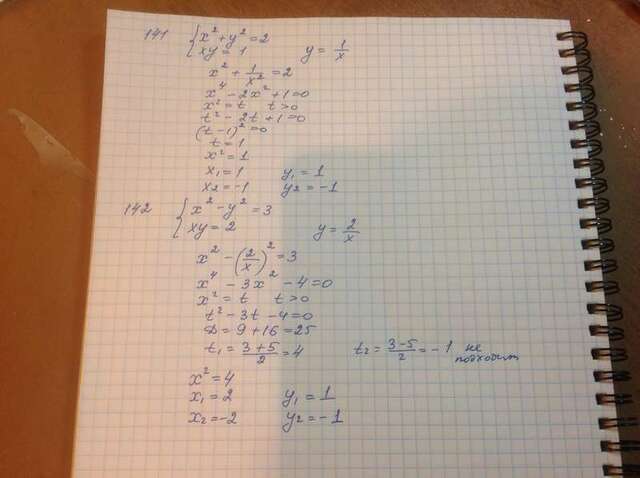 141 { x² + y² = 2
xy = 1 y = 1/x
x² + 1/x² = 2
x⁴ - 2x² + 1 = 0
x² = t t > 0
t² - 2t + 1 = 0
(t - 1)² = 0
t = 1
x² = 1
x₁ = 1 y₁ = 1
x₂ = -1 y₂ = -1
142 { x² - y² = 3
xy = 2 y = 2/x
x² - (2/x)² = 3
x⁴ - 3x² - 4 = 0
x² = t t > 0
t² - 3t - 4 = 0
D = 9 + 16 = 25
t₁ = (3+5)/2 = 4 t₂ = (3-5)/2 = -1 не
подходит
x² = 4
x₁ = 2 y₁ = 1
x₂ = -2 y₂ = -1